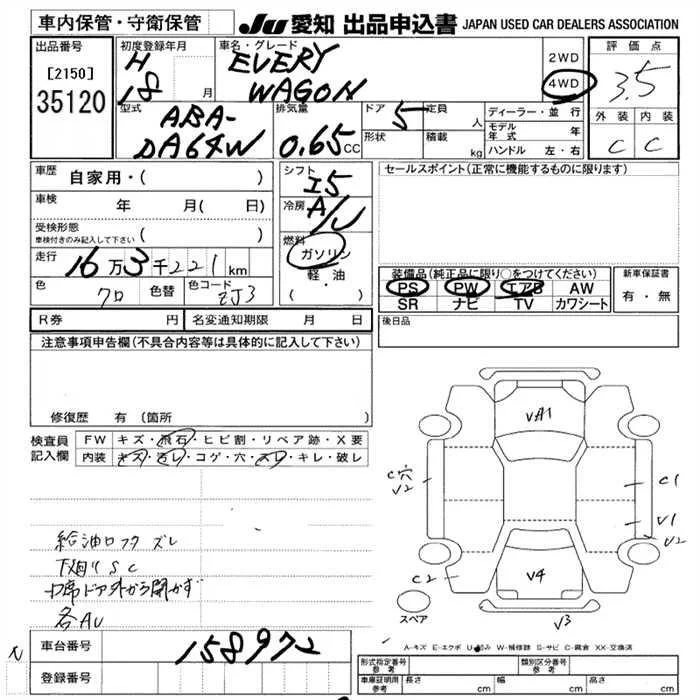 車内保管・守衛保管
JU 愛知 出品申込書 JAPAN USED CAR DEALERS ASSOCIATION
出品番号
[2150]
35120
初度登録年月
H
18 月
車名・グレード
EVERY
WAGON
2WD
4WD
評価点
3.5
型式
ABA-
DA64W
排気量
0.65 CC
ドア
5
形状
定員
人
積載
kg
ディーラー・並行
モデル年式 年
ハンドル 左・右
外装 内装
C C
車歴
自家用・( )
車検
年 月( 日)
受検形態
車検付きのみ記入して下さい ( )
走行
16万3千221km
色
クロ
色替
色コード
ZJ3
シフト
I5
冷房
A/C
燃料
ガソリン
軽・油
( )
セールスポイント(正常に機能するものに限ります)
装備品(純正品に限り○をつけてください)
PS PW エアB AW
SR ナビ TV カワシート
新車保証書
有・無
R券 円
名変通知期限 月 日
後日品
注意事項申告欄(不具合内容等は具体的に記入して下さい)
修復歴 有(箇所
検査員記入欄
FW キズ・飛石・ヒビ割・リペア跡・X要
内装 キズ・汚レ・コゲ・穴・スレ・キレ・破レ
給油口フタ ズレ
下廻り S C
中席ドア外から開かず
各AU
VA1
C穴
V2
C1
V1
V2
C2
V4
V3
スペア
A-キズ E-エクボ U-凹み W-補修跡 S-サビ C-腐食 XX-交換済
車台番号
158972
登録番号
形式指定番号
参考
類別区分番号
参考
車庫証明用
参考
長さ cm
幅 cm
高さ cm